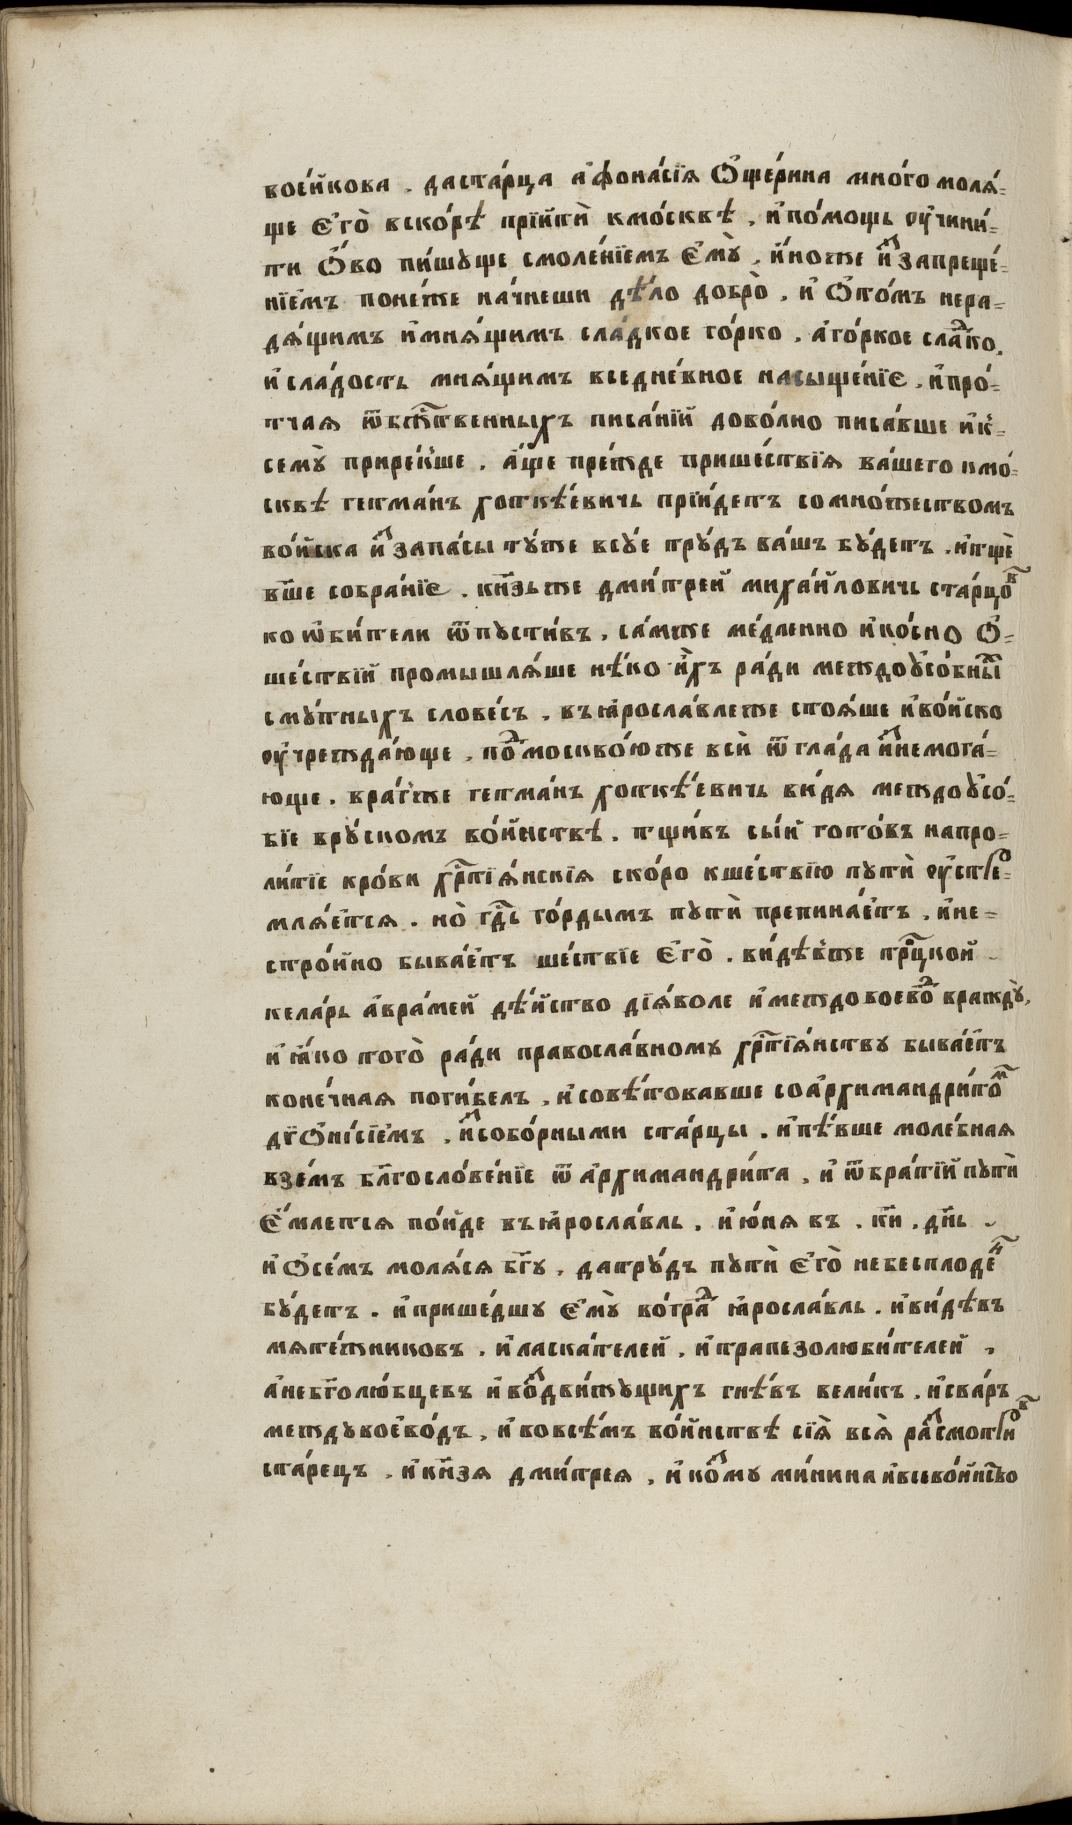 воє́йкова . даста́рца а҆ѳона́сїѧ Ѻ҆ще́рина мно́го молѧ́-
ще Є҆го̀ вско́рѣ прїитѝ кмо́сквѣ , и҆по́мощь ѹ҆чини́-
ти Ѻ҆́во пи́шꙋще смоле́нїемъ Є҆мꙋ̀ , и҆́ноже и҆зⷥапреще́-
нїемъ поне́же на́чнеши дѣ́ло добро̀ . и҆ Ѻ҆то́мъ нера-
дѧ́щимъ и҆мнѧ́щимъ сла́дкое го́рко , а҆го́ркое слаⷣко ,
и҆сла́дость мнѧ́щимъ вседне́вное насыще́нїе , и҆про́-
тчаѧ ѿбжⷭ҇твенныхъ писа́нїй дово́лно писа́вше и҆к-
семꙋ̀ прире́кше . а҆́ще пре́жде прише́ствїѧ ва́шего кмо́-
сквѣ гетма́нъ хоткѣ́евичь прїи́детъ со мно́жеством
во́йска и҆ запа́сы тꙋ́же всꙋ́е трꙋ́дъ ва́шъ бꙋ́детъ . и҆тщѐ
в҃ше собра́нїе . кн҃зьже дми́трей миха́йловичь ста́рцоⷡ
ко ѡ҆би́тели ѿпꙋсти́въ , са́мже ме́дленно и҆ко́сно Ѻ҆-
ше́ствїй промышлѧ́ше нѣ́ко и҆́хъ ра́ди междоꙋсо́бныⷯ
смꙋ́тныхъ слове́съ , въꙗ҆росла́влеже стоѧ́ше и҆во́йско
ѹ҆чрежда́юще . поⷣмоскво́юже всѝ ѿгла́да и҆зⷥнемога́-
юще . вра́гже гетма́нъ хоткѣ́евичь ви́дѧ междоꙋсо́-
бїе врꙋ́ском во́йнствѣ . тщи́въ сы́й гото́въ напро-
ли́тїе кро́ви хрⷭ҇тїѧ́нскїѧ ско́ро кше́ствїю пꙋтѝ ѹ҆стре-
млѧ́етсѧ . но̀ гдⷭ҇ь го́рдымъ пꙋтѝ препина́етъ . и҆не-
стро́йно быва́етъ ше́ствїе Є҆го̀ . ви́дѣвже трⷪ҇ицкой
кела́рь а҆вра́мей дѣ́йство дїѧ́воле и҆междо воевоⷣ враждꙋ̀ ,
и҆ ꙗ҆́ко того̀ ра́ди правосла́вномꙋ хрⷭ҇тїѧ́нствꙋ быва́етъ
коне́чнаѧ поги́бель , и҆совѣ́товавше соа҆рхимандри́тоⷨ
дїѺ҆ни́сїемъ , и҆ собо́рными ста́рцы . и҆пѣ́вше моле́бнаѧ
взе́мъ блⷭ҇ослове́нїе ѿ а҆рхимандри́та , и҆ ѿбра́тїй пꙋтѝ
Є҆́млетсѧ по́йде въꙗ҆росла́вль . и҆ю́нѧ въ . к҃и . дн҃ь
и҆ Ѻ҆се́мъ молѧ́сѧ бг҃ꙋ . датрꙋ́дъ пꙋтѝ Є҆го̀ небесплоде́ⷩ
бꙋ́детъ . и҆прише́дшꙋ Є҆мꙋ̀ во́граⷣ ꙗ҆росла́вль . и҆ви́дѣвъ
мѧте́жниковъ , и҆ласка́телей , и҆трапезолюби́телей ,
а҆небг҃олю́бцевъ и҆ воздви́жꙋщихъ гнѣ́въ вели́къ . и҆сва́ръ
междꙋвоево́дъ , и҆ вовсе́мъ во́йнствѣ сїѧ̀ всѧ̀ разсмотри́ⷡ
ста́рецъ . и҆ кн҃зѧ дми́трея , и҆ козⷥмꙋ ми́нина и҆всево́йнство